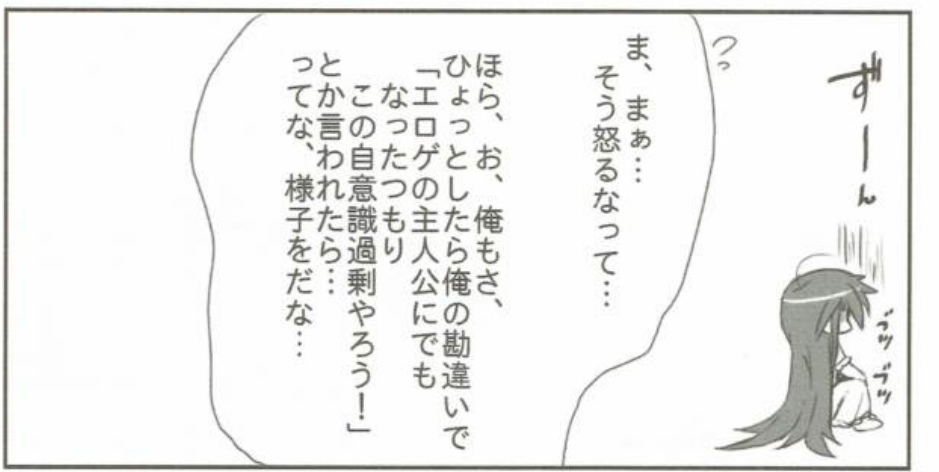 ずーん
ブツ
ブツ
ま、まぁ…
そう怒るなって…
ほら、お、俺もさ、
ひょっとしたら俺の勘違いで
「エロゲの主人公にでも
なったつもり
この自意識過剰やろう!」
とか言われたら…
ってな、様子をだな…